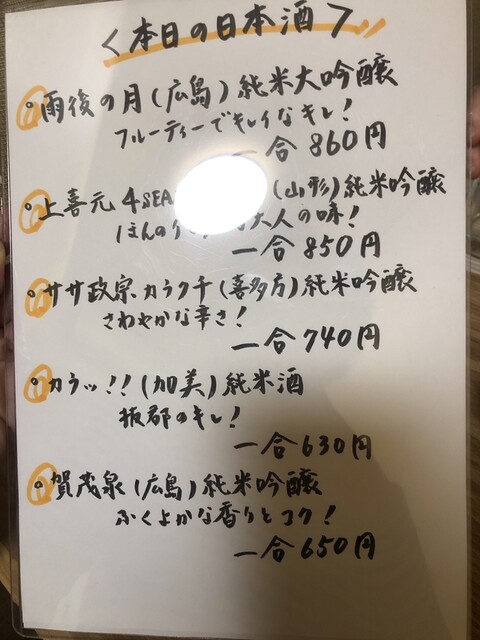 <本日の日本酒>
雨後の月(広島)純米大吟醸
フルーティーでキレイなキレ!
一合860円
上喜元 4SEA (山形)純米吟醸
ほんの 大人の味!
一合850円
ササ政宗カラクチ(喜多方)純米吟醸
さわやかな辛さ!
一合740円
カラッ!!(加美)純米酒
抜群のキレ!
一合630円
賀茂泉(広島)純米吟醸
ふくよかな香りとコク!
一合650円